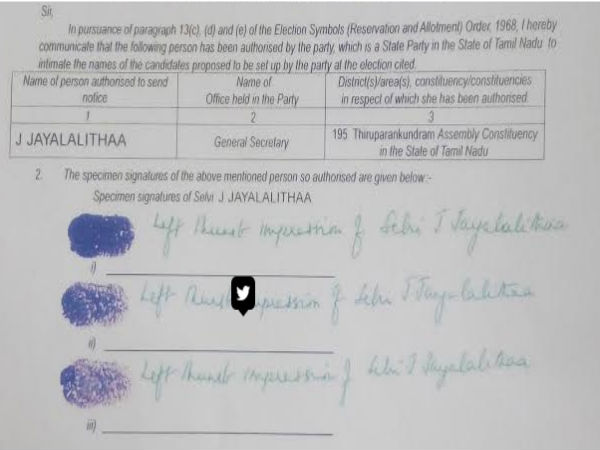 Sir,
In pursuance of paragraph 13(c), (d) and (e) of the Election Symbols (Reservation and Allotment) Order, 1968, I hereby
communicate that the following person has been authorised by the party, which is a State Party in the State of Tamil Nadu to
intimate the names of the candidates proposed to be set up by the party at the election cited.
Name of person authorised to send notice
Name of Office held in the Party
District(s)/area(s), constituency/constituencies in respect of which she has been authorised
1
2
3
J JAYALALITHAA
General Secretary
195 Thiruparankundram Assembly Constituency
in the State of Tamil Nadu
2. The specimen signatures of the above mentioned person so authorised are given below:-
Specimen signatures of Selvi J JAYALALITHAA
Left Thumb impression of Selvi J Jayalalithaa
i)
Left Thumb impression of Selvi J Jayalalithaa
ii)
Left Thumb impression of Selvi J Jayalalithaa
iii)